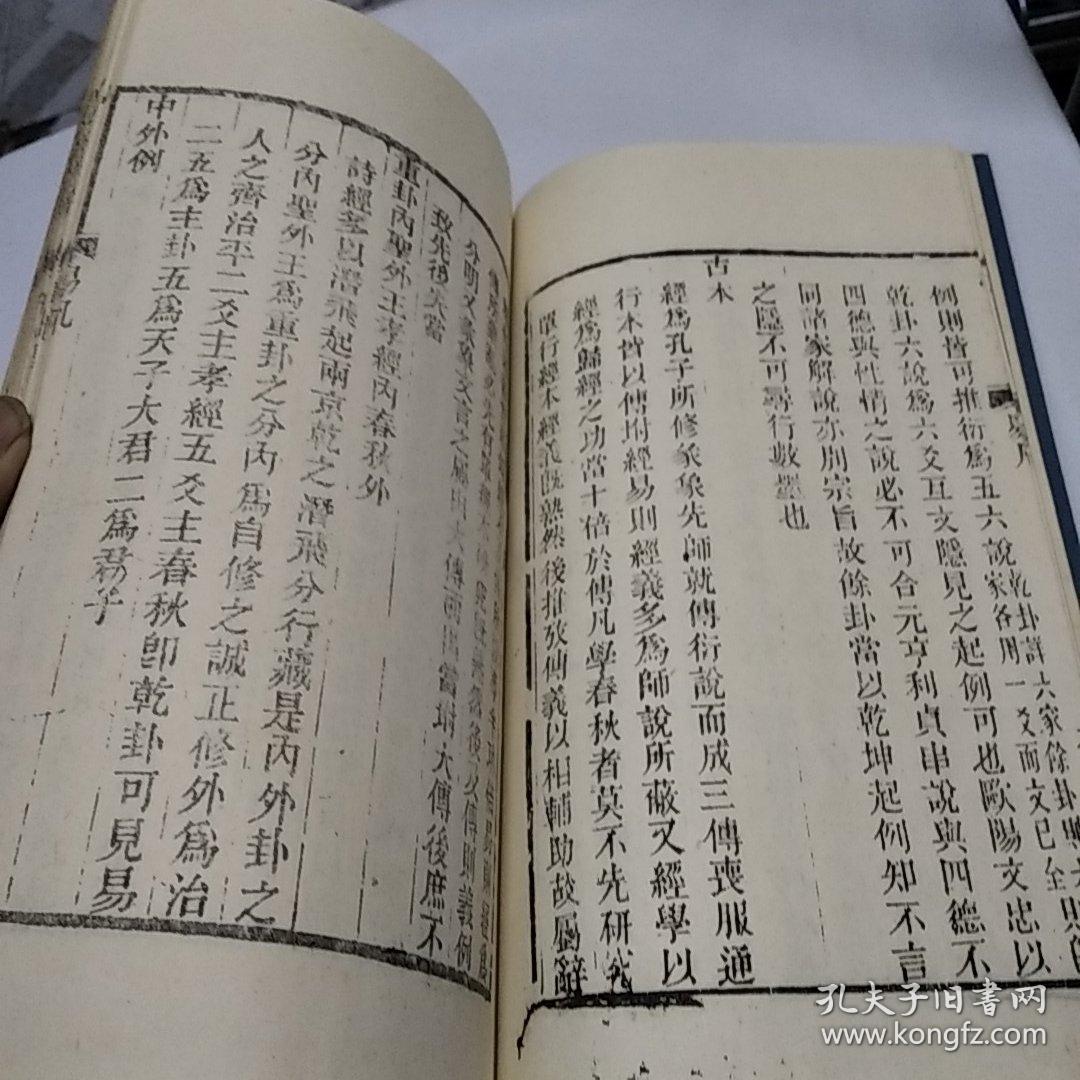 乾卦詳六家餘卦
家各用一爻而文已全
例則皆可推衍爲五六說
乾卦六說爲六爻互文隱見之起例可也歐陽文忠以
四德與性情之說必不可合元亨利貞串說與四德不
同諸家解說亦別宗旨故餘卦當以乾坤起例知不言
之隱不可尋行數墨也
古本
經爲孔子所修彖象先師就傳衍說而成三傳喪服通
行本皆以傳坿經易則經義多爲師說所蔽又經學以
經爲歸經之功當十倍於傳凡學春秋者莫不先研究
單行經本經義旣熟然後推攷傳義以相輔助故屬辭
分明又彖象文言之屬由大傳而出當坿大傳後庶不
致先後失當
重卦內聖外王孝經內春秋外
詩經多以潛飛起兩京乾之潛飛分行藏是內外卦之
分內聖外王爲重卦之分內爲自修之誠正修外爲治
人之齊治平二爻主孝經五爻主春秋卽乾卦可見易
二五爲主卦五爲天子大君二爲君子
中外例
孔夫子旧书网
www.kongfz.com